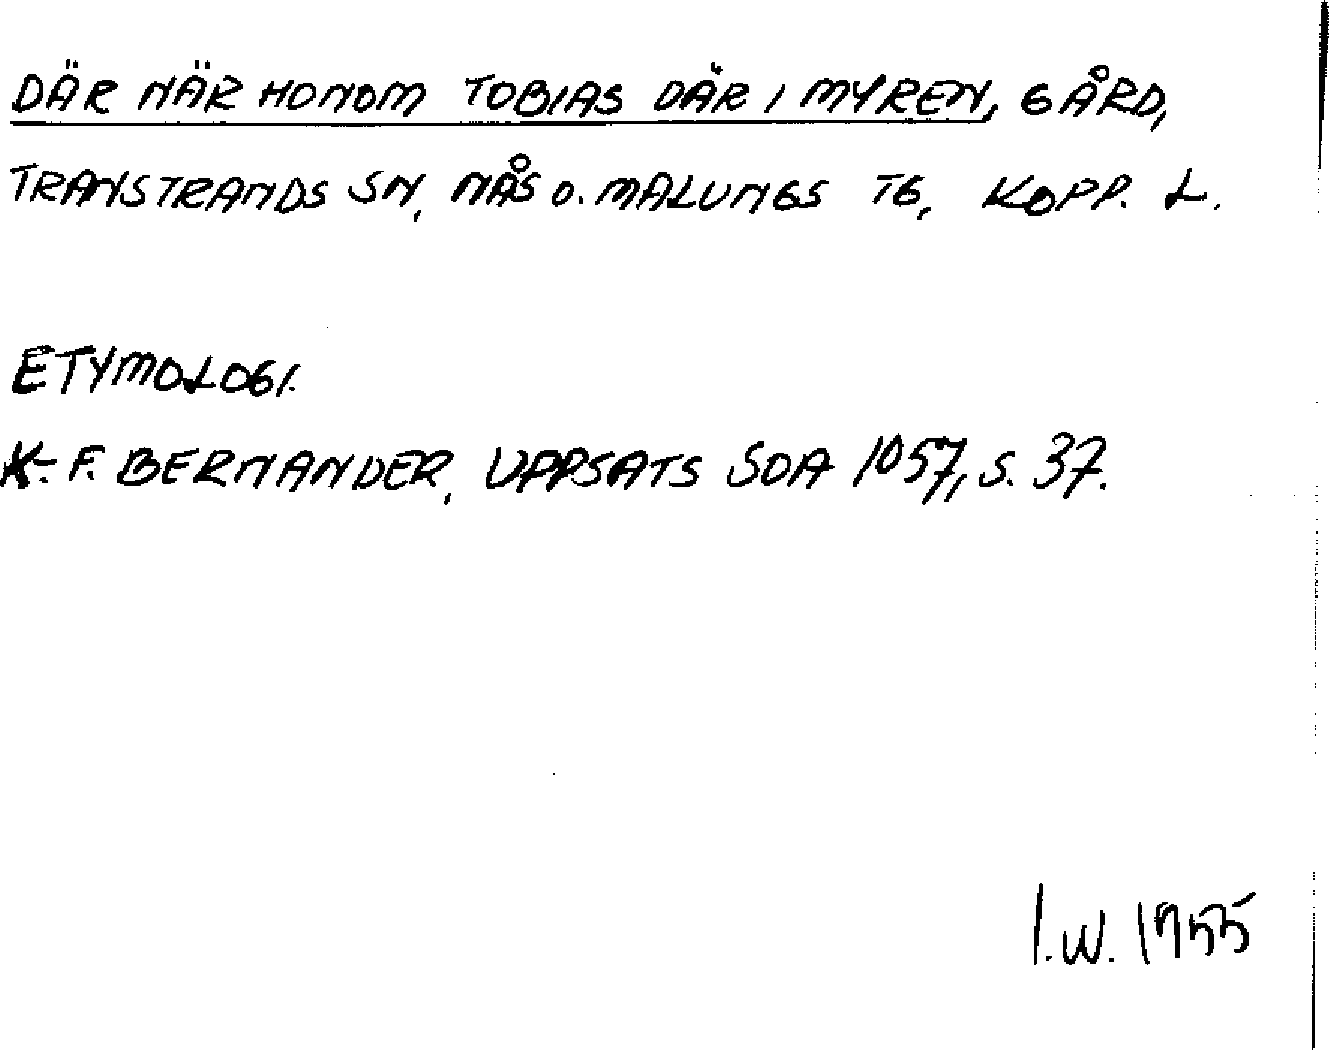 DÄR NÄR HONOM TOBIAS DÄR I MYREN, GÅRD,
TRANSTRANDS SN, NÅS O. MALUNGS TG, KOPP. L.
ETYMOLOGI.
K-F. BERNANDER, UPPSATS SOA 1057, S. 37.
I.W. 1955